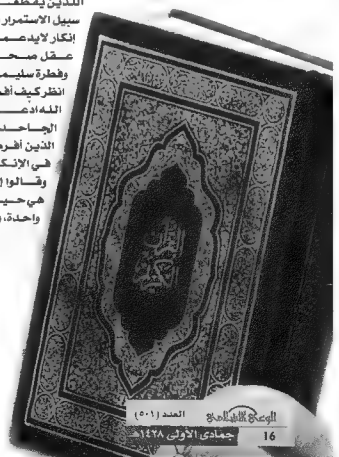 اللذين يقطعـ
سبيل الاستمرار
إنكار لا يدعمـ
عـقل صـحـ
وفطرة سليمـ
انظر كيف أفـ
الله ادعـ
الجـاحـد
الذين أفرط
في الإنكـ
وقـالوا إ
هي حيـ
واحدة،
القرآن الكريم
الوعي الإسلامي
العدد (٥٠١)
جمادى الأولى ١٤٢٨هـ
16